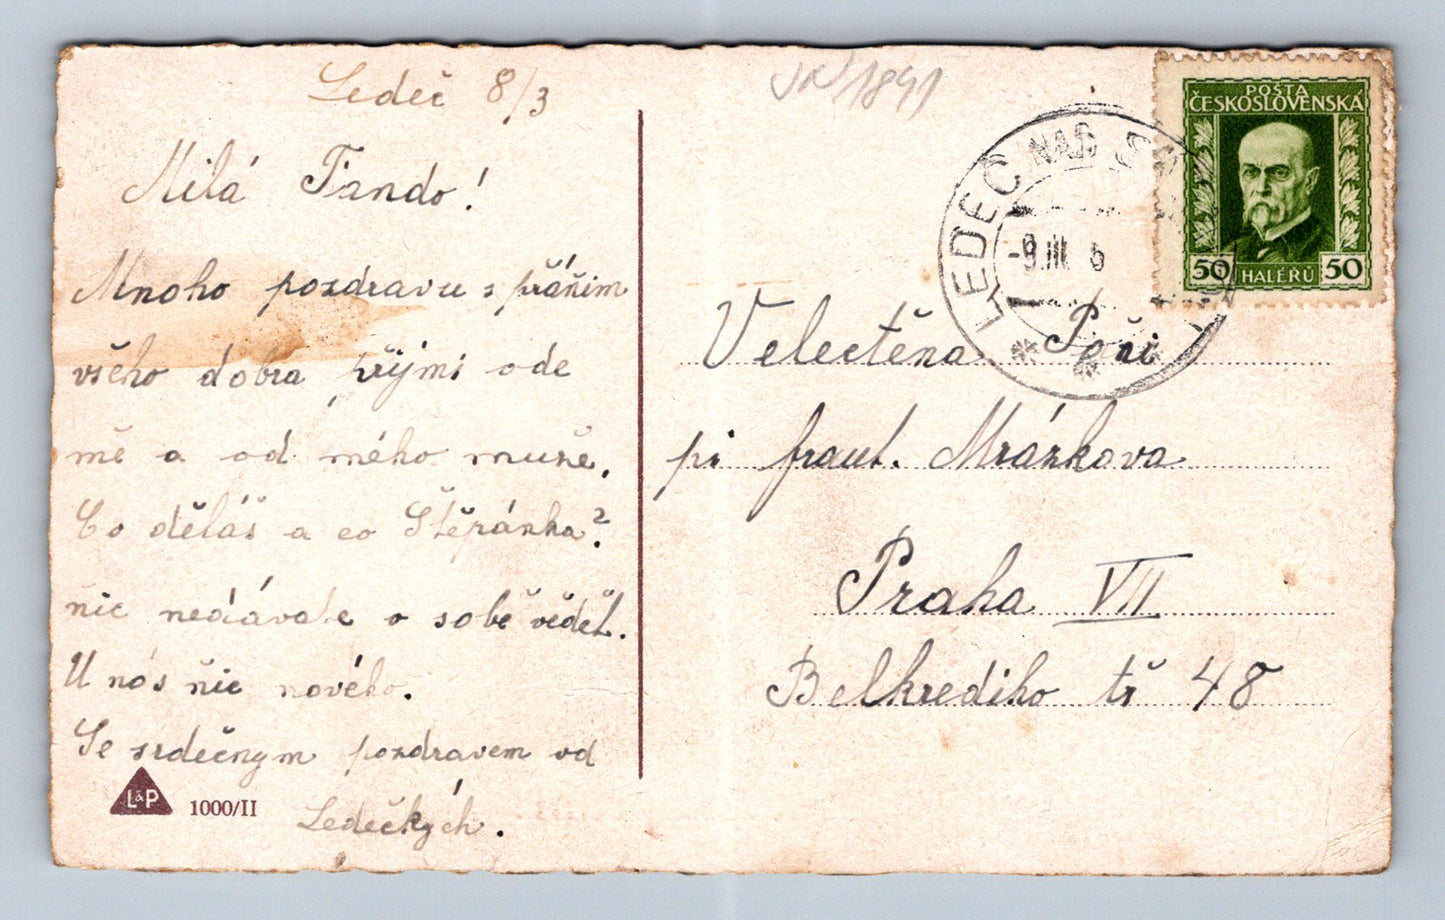 Ledeč 8/3
Milá Fando!
Mnoho pozdravu s přáním
všeho dobra přijmi ode
mě a od mého muže.
Co děláš a co Štěpánka?
nic nedáváte o sobě vědět.
U nás nic nového.
Se srdečným pozdravem od
Ledečkých.
L&P 1000/II
1841
POŠTA
ČESKOSLOVENSKÁ
50 HALÉŘŮ 50
LEDEČ NAD
-9.III 6
Velectěna
pi fraut. Mrázkova
Praha VII
Belkrediho tř 48